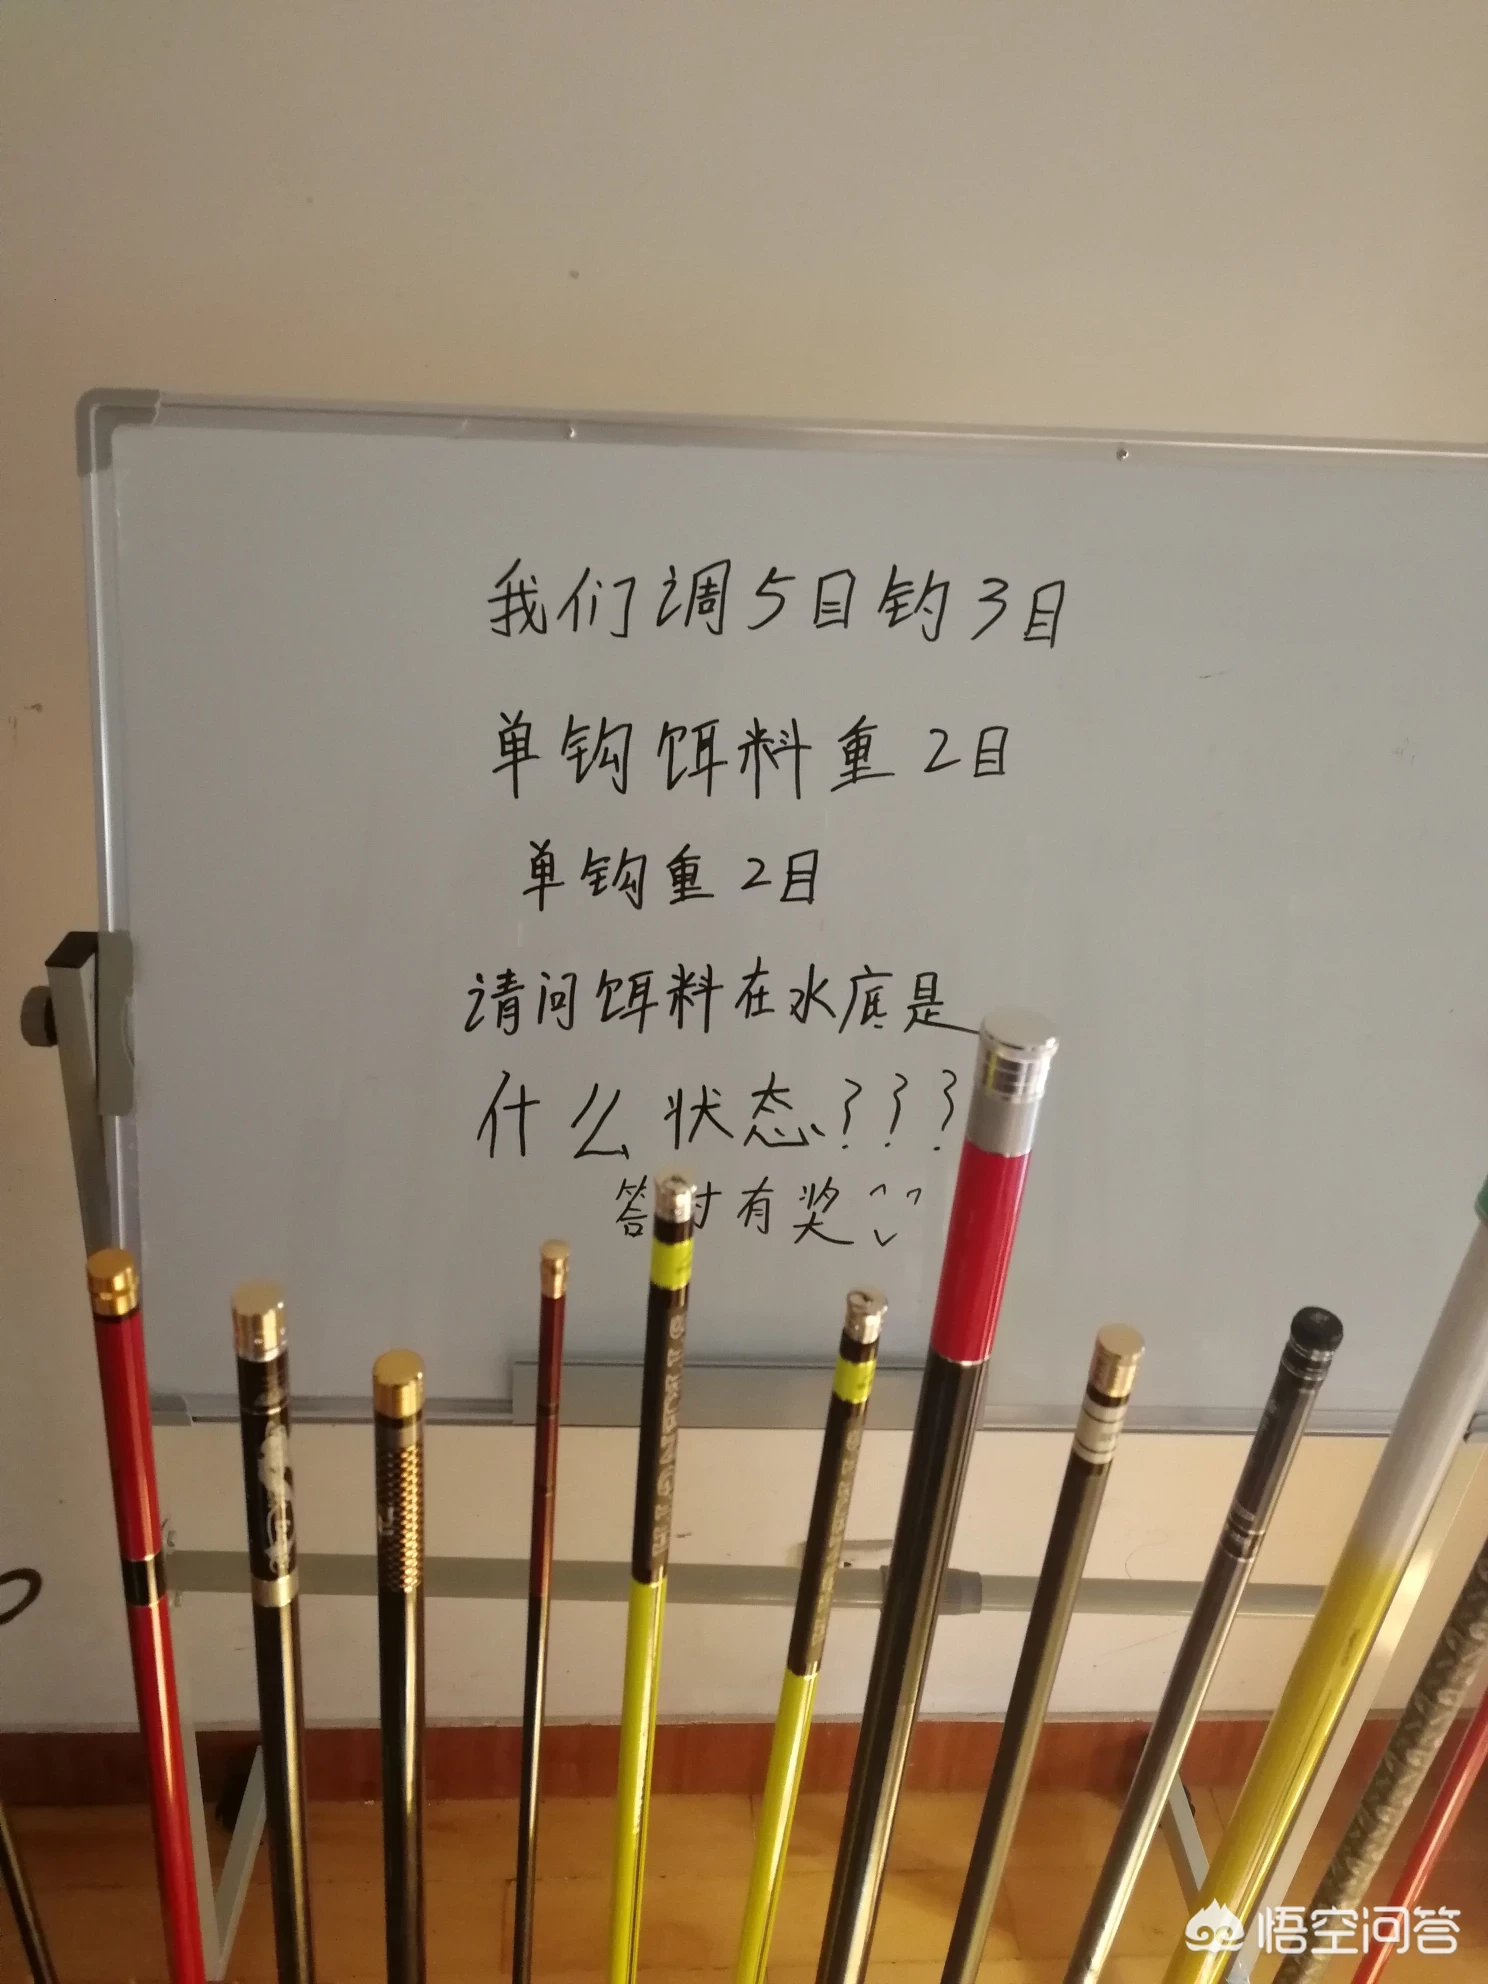 我们调5目钓3目
单钩饵料重2目
单钩重2目
请问饵料在水底是
什么状态???
答对有奖
悟空问答